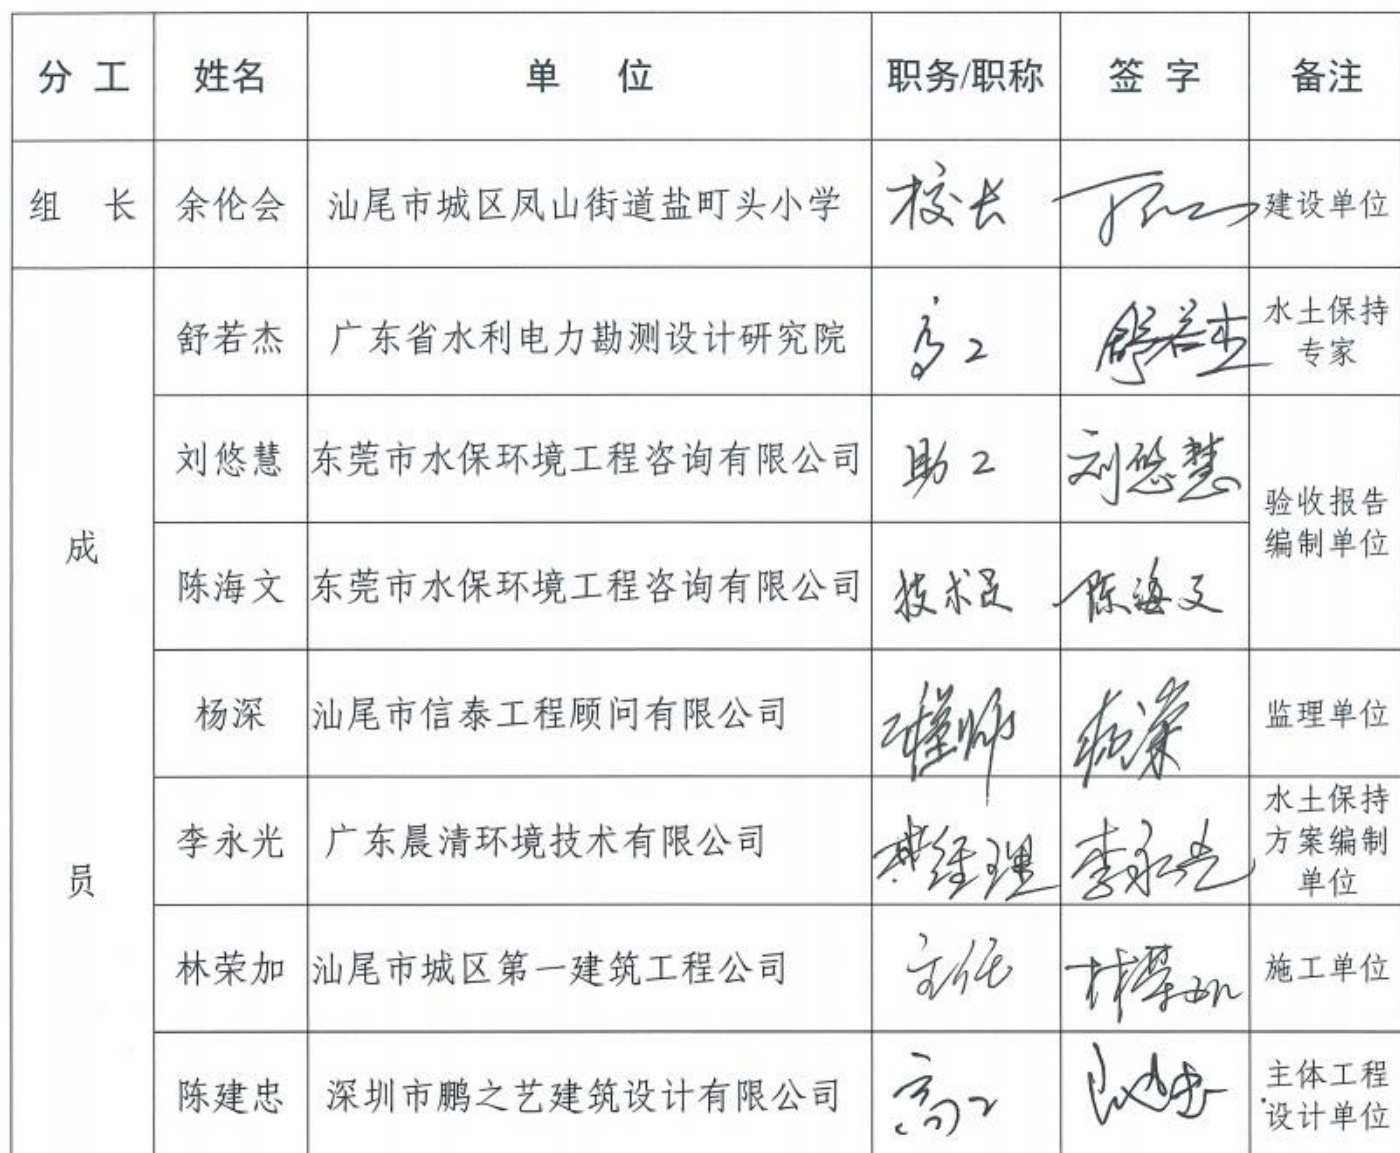 分 工 姓名 单 位 职务/职称 签 字 备注
组 长 余伦会 汕尾市城区凤山街道盐町头小学 校长 建设单位
成
员
舒若杰 广东省水利电力勘测设计研究院 高工 舒若杰 水土保持
专家
刘悠慧 东莞市水保环境工程咨询有限公司 助工 刘悠慧
验收报告
编制单位
陈海文 东莞市水保环境工程咨询有限公司 技术员 陈海文
杨深 汕尾市信泰工程顾问有限公司 工程师 杨深 监理单位
李永光 广东晨清环境技术有限公司 经理 李永光 水土保持
方案编制
单位
林荣加 汕尾市城区第一建筑工程公司 主任 林荣加 施工单位
陈建忠 深圳市鹏之艺建筑设计有限公司 高工 主体工程
设计单位